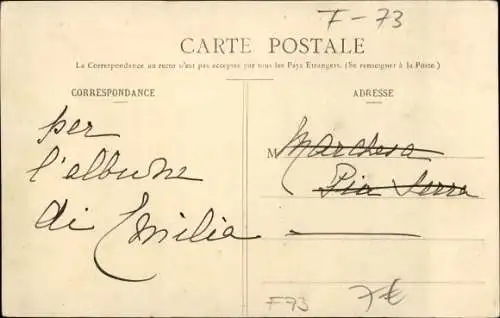 F-73
CARTE POSTALE
La Correspondance au recto n'est pas acceptée par tous les Pays Etrangers. (Se renseigner à la Poste.)
CORRESPONDANCE
ADRESSE
per
l'album
di Emilia
M Marchesa
Pia Serra
F73
7€